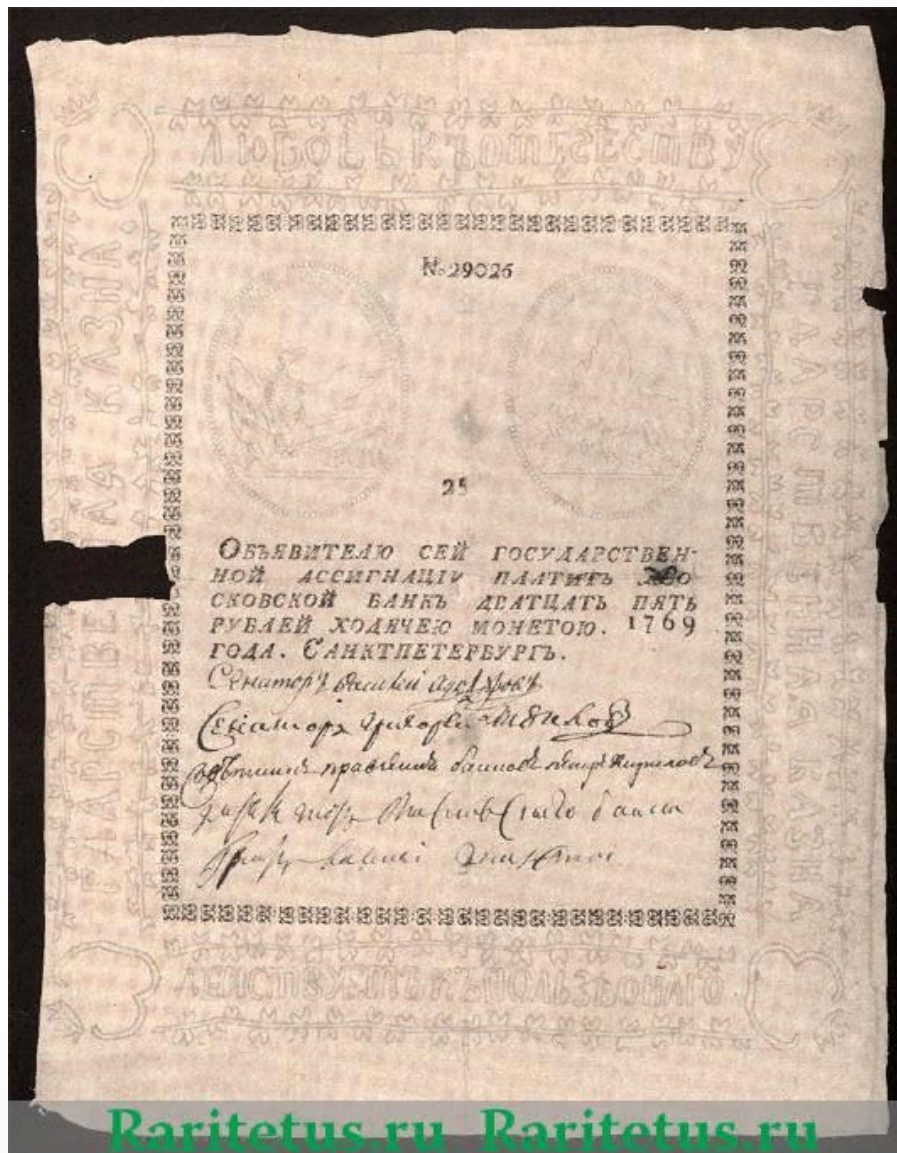 ЛЮБОВЬ КЪ ОТЕЧЕСТВУ
№ 29026
25
ОБЪЯВИТЕЛЮ СЕЙ ГОСУДАРСТВЕН-
НОЙ АССИГНАЦІИ ПЛАТИТЪ МО
СКОВСКОЙ БАНКЪ ДВАТЦАТЬ ПЯТЬ
РУБЛЕЙ ХОДЯЧЕЮ МОНЕТОЮ. 1769
ГОДА. САНКТПЕТЕРБУРГЪ.
Сенаторъ
Сенаторъ
Совѣтникъ правления банковъ
ДЕЙСТВУЕТЪ КЪ ПОЛЬЗѢ ОНАГО
КАЗНА
КАЗНА
Raritetus.ru Raritetus.ru